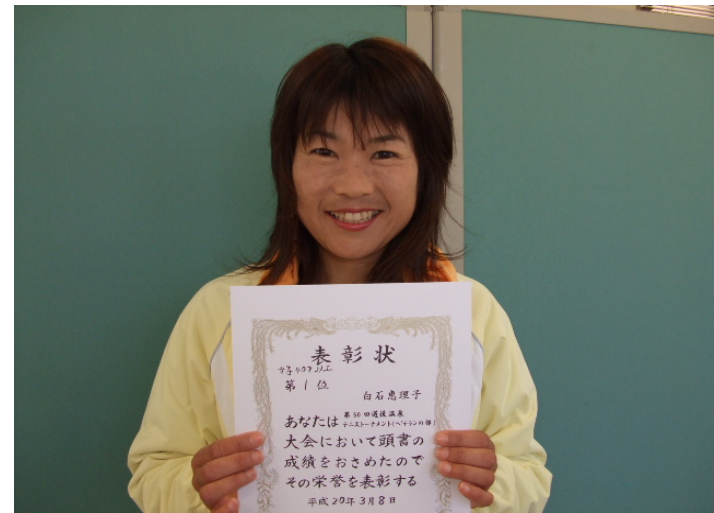 表彰状
女子40才以上
第1位
白石恵理子
あなたは 第50回道後温泉
テニストーナメント(ベテランの部)
大会において頭書の
成績をおさめたので
その栄誉を表彰する
平成20年3月8日